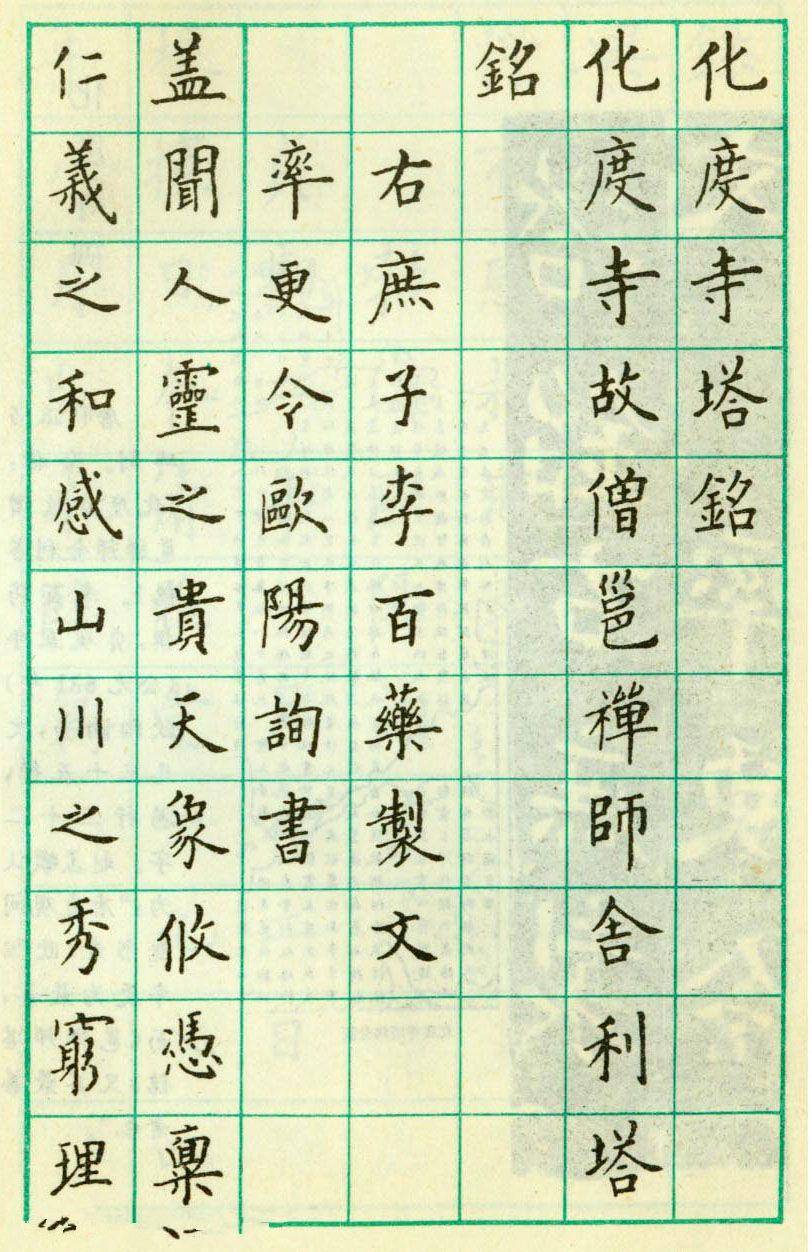 化度寺塔銘
化度寺故僧邕禪師舍利塔
銘
右庶子李百藥製文
率更令歐陽詢書
盖聞人靈之貴天象攸憑稟
仁義之和感山川之秀窮理